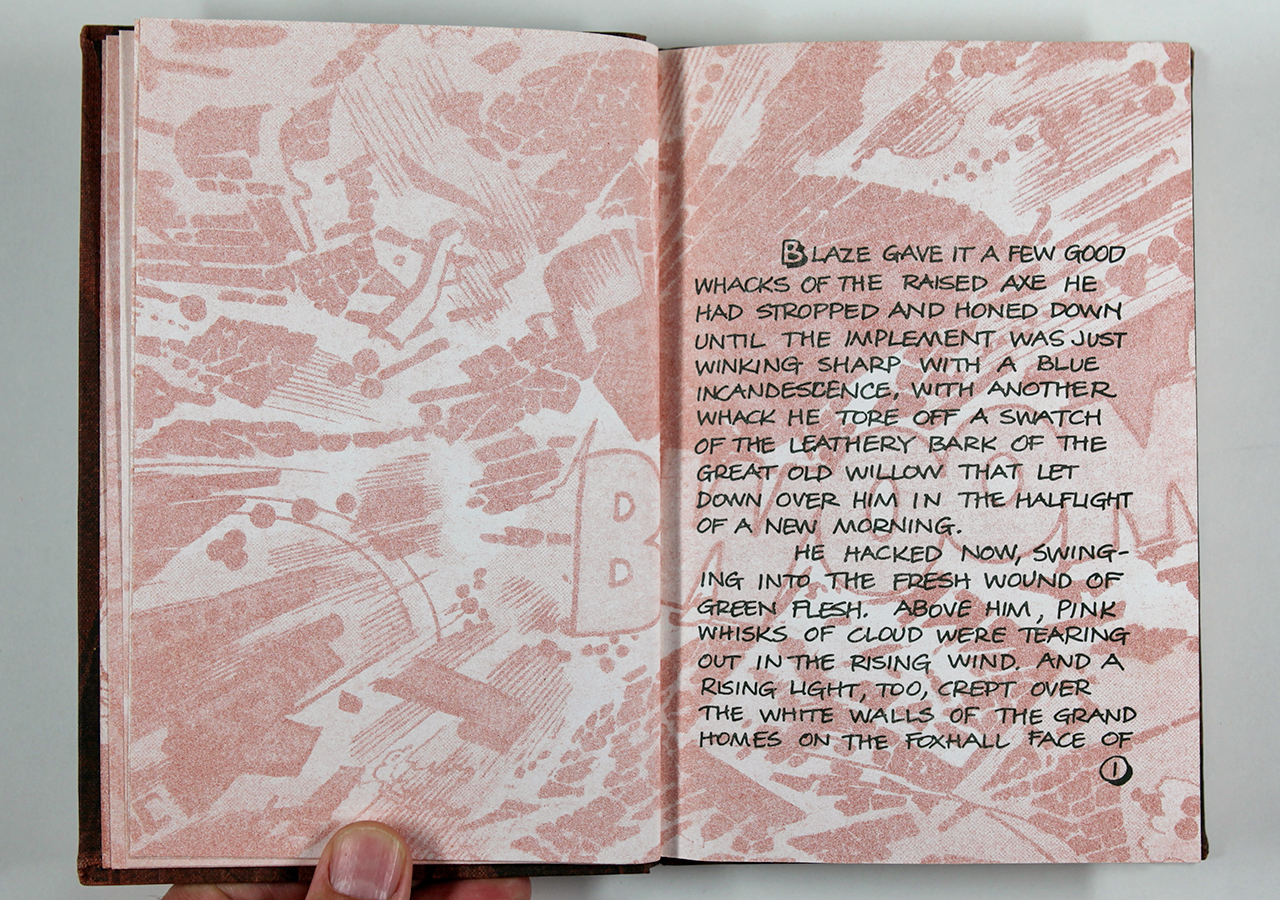 BLAZE GAVE IT A FEW GOOD
WHACKS OF THE RAISED AXE HE
HAD STROPPED AND HONED DOWN
UNTIL THE IMPLEMENT WAS JUST
WINKING SHARP WITH A BLUE
INCANDESCENCE, WITH ANOTHER
WHACK HE TORE OFF A SWATCH
OF THE LEATHERY BARK OF THE
GREAT OLD WILLOW THAT LET
DOWN OVER HIM IN THE HALFLIGHT
OF A NEW MORNING.
HE HACKED NOW, SWING-
ING INTO THE FRESH WOUND OF
GREEN FLESH. ABOVE HIM, PINK
WHISKS OF CLOUD WERE TEARING
OUT IN THE RISING WIND. AND A
RISING LIGHT, TOO, CREPT OVER
THE WHITE WALLS OF THE GRAND
HOMES ON THE FOXHALL FACE OF
1